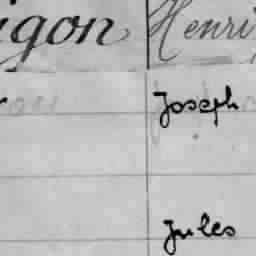 igon Henri
Joseph
Jules